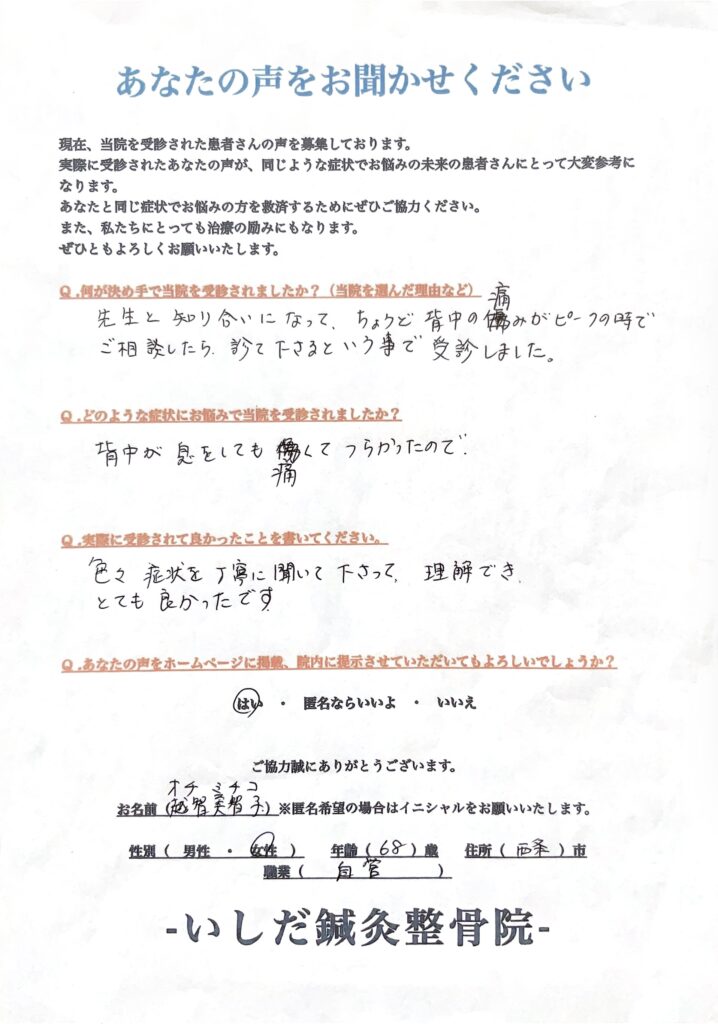 あなたの声をお聞かせください
現在、当院を受診された患者さんの声を募集しております。
実際に受診されたあなたの声が、同じような症状でお悩みの未来の患者さんにとって大変参考に
なります。
あなたと同じ症状でお悩みの方を救済するためにぜひご協力ください。
また、私たちにとっても治療の励みにもなります。
ぜひともよろしくお願いいたします。
Q.何が決め手で当院を受診されましたか？（当院を選んだ理由など）
先生と知り合いになって、ちょうど背中の痛みがピークの時で
ご相談したら、診て下さるという事で受診しました。
Q.どのような症状にお悩みで当院を受診されましたか？
背中が息をしても痛くてつらかったので、
Q.実際に受診されて良かったことを書いてください。
色々症状を丁寧に聞いて下さって、理解でき、
とても良かったです
Q.あなたの声をホームページに掲載、院内に提示させていただいてもよろしいでしょうか？
はい ・ 匿名ならいいよ ・ いいえ
ご協力誠にありがとうございます。
オチ ミチコ
お名前（越智美智子）※匿名希望の場合はイニシャルをお願いいたします。
性別（ 男性 ・ 女性 ） 年齢（ 68 ）歳 住所（ 西条 ）市
職業（ 自営 ）
-いしだ鍼灸整骨院-